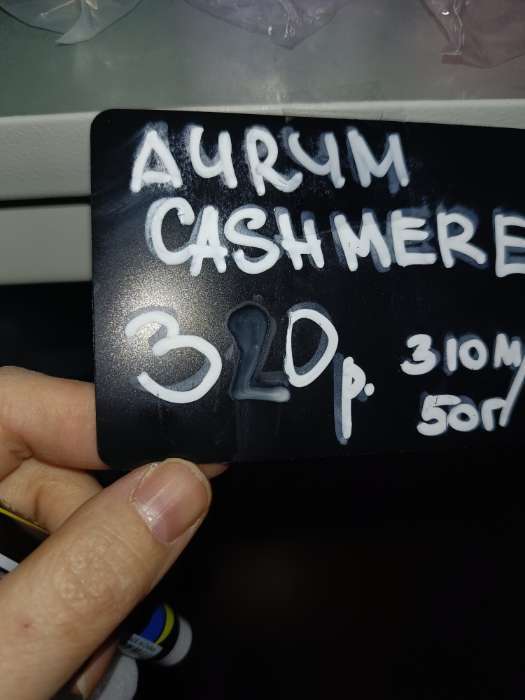 AURUM
CASHMERE
320р.
310м/
50г